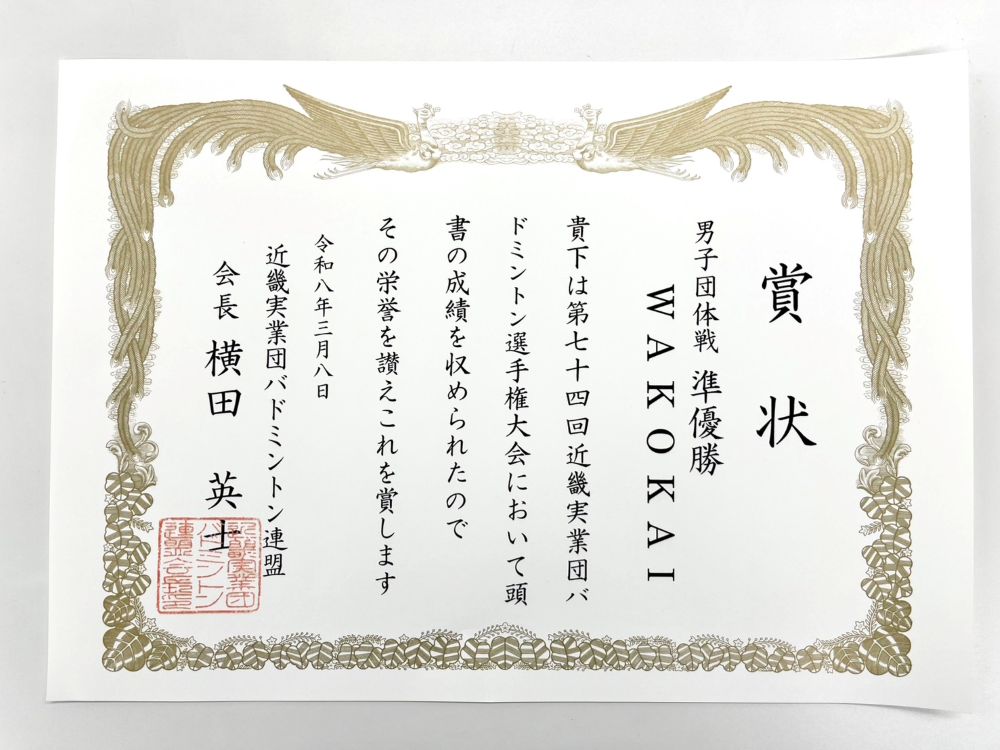 賞状
男子団体戦 準優勝
WAKOKAI
貴下は第七十四回近畿実業団バ
ドミントン選手権大会において頭
書の成績を収められたので
その栄誉を讃えこれを賞します
令和八年三月八日
近畿実業団バドミントン連盟
会長 横田 英士
近畿実業団
バドミントン
連盟会長之印